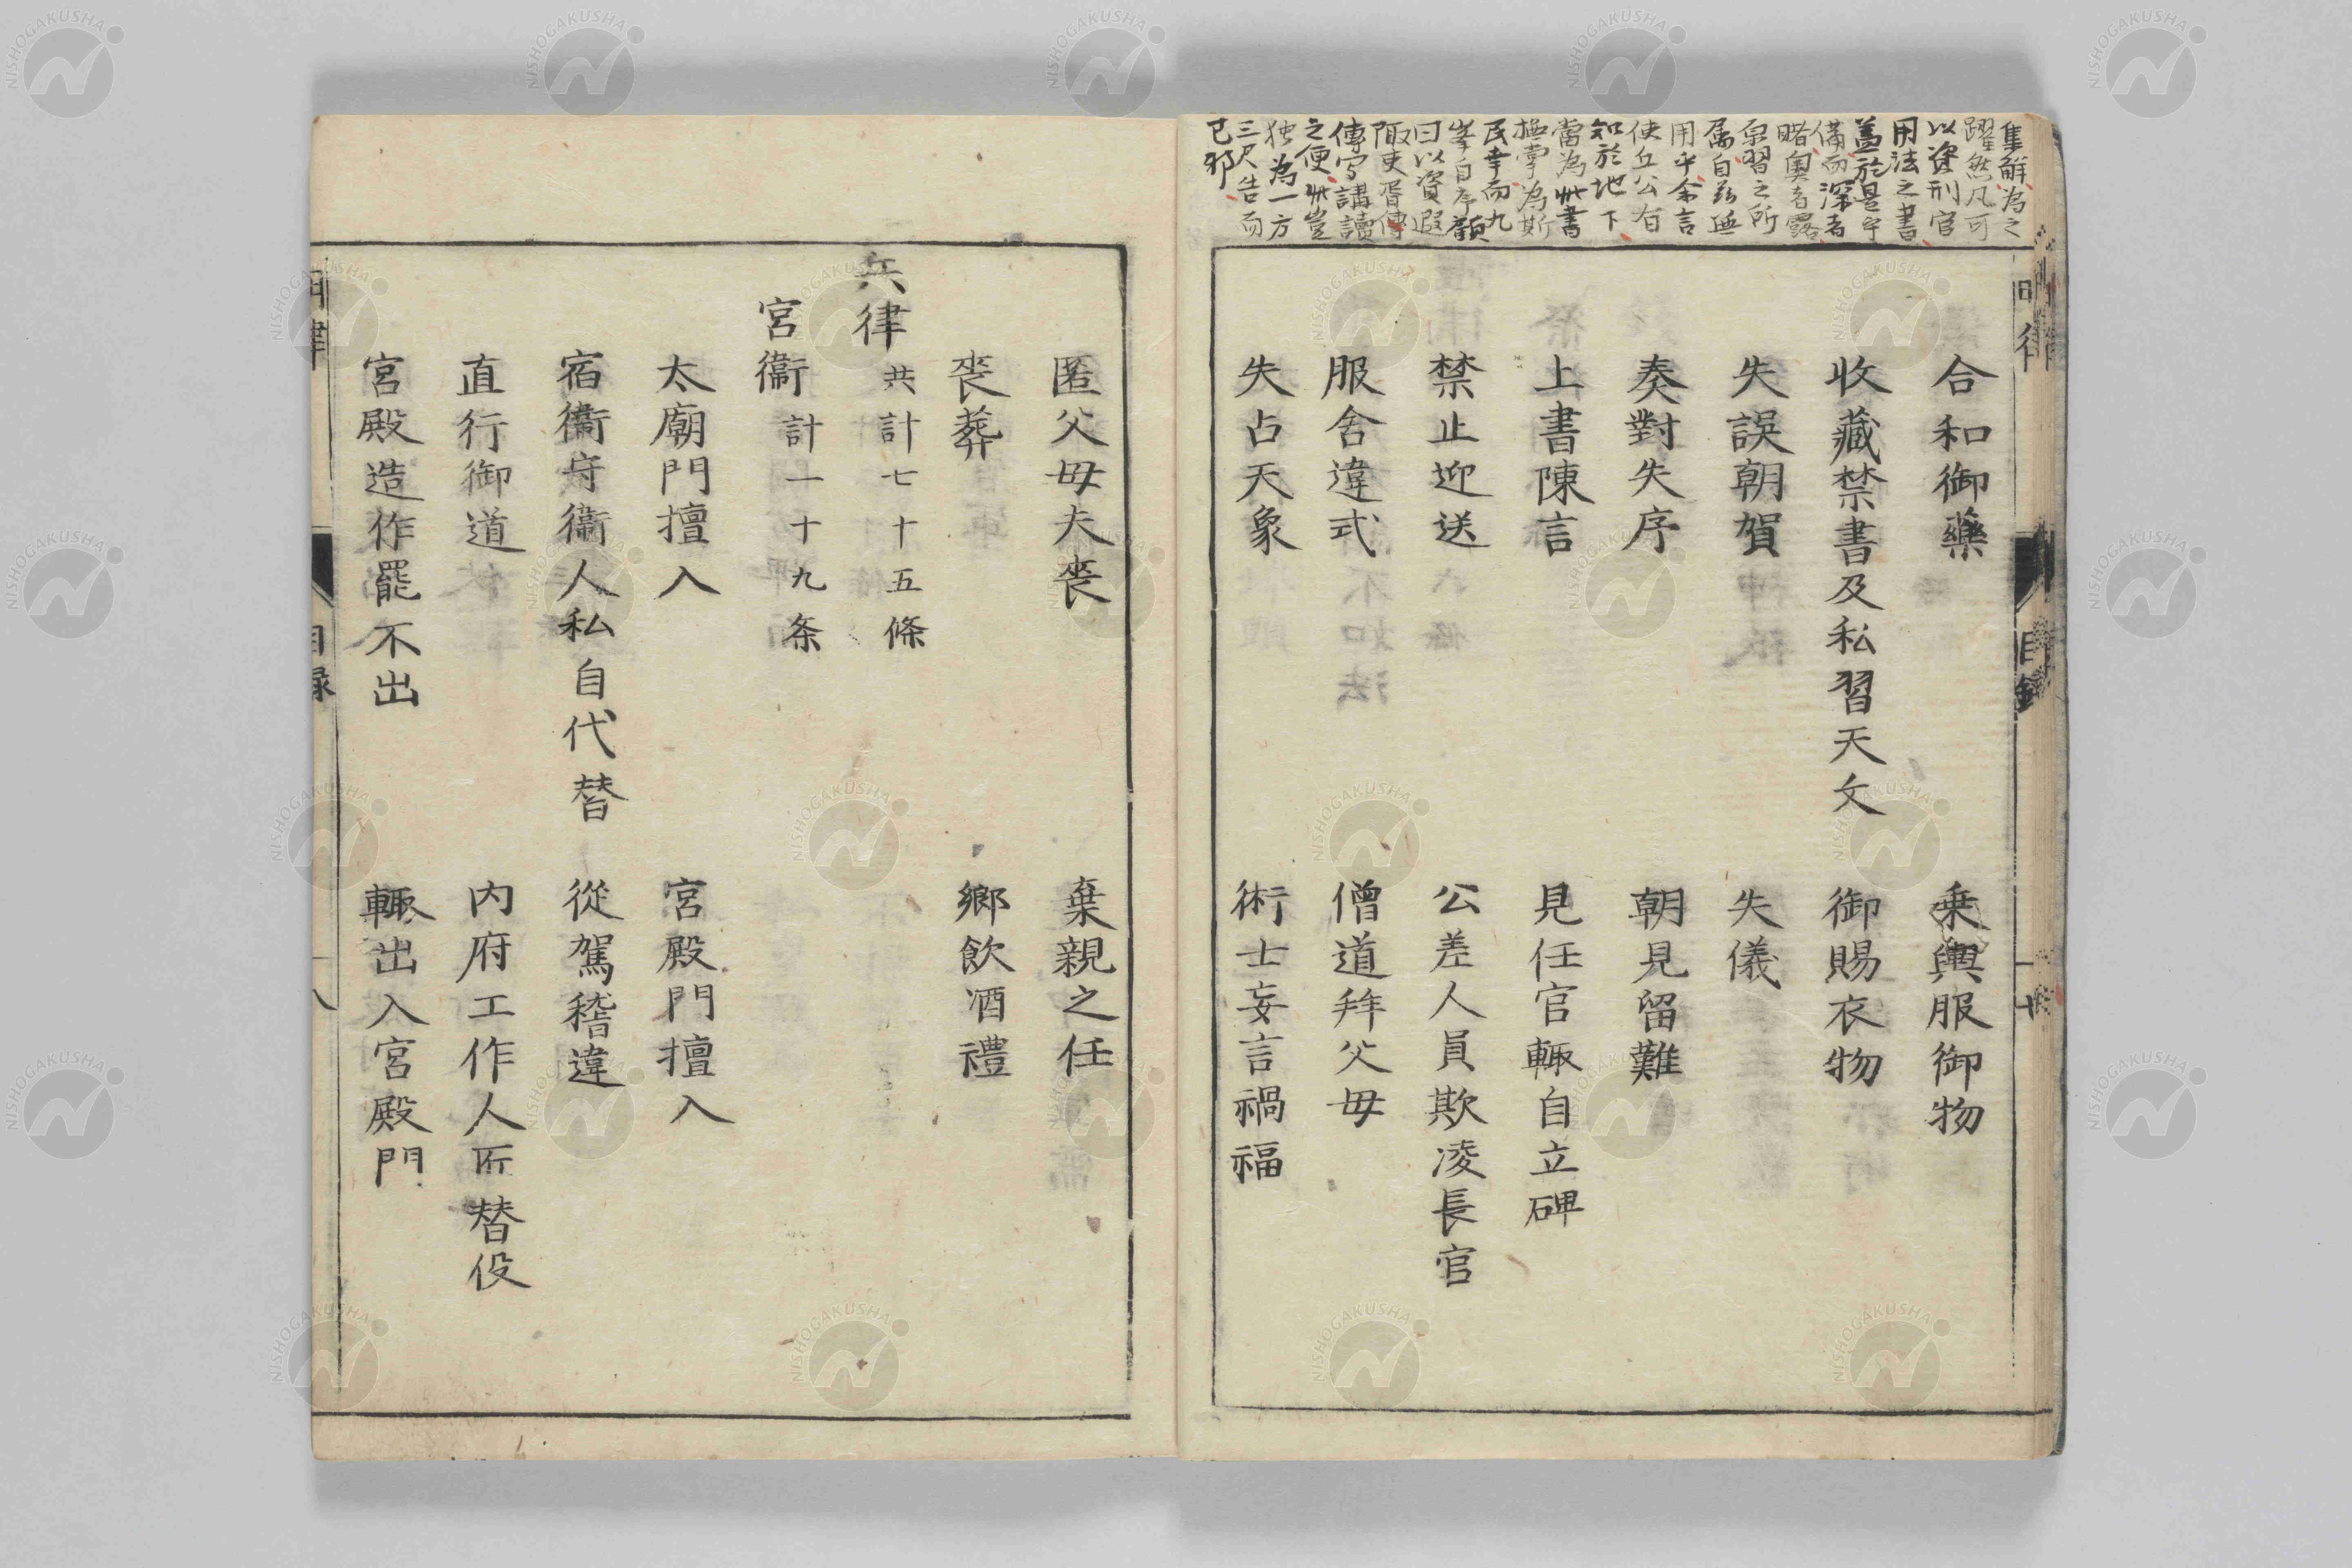 集觧為之
躍然凡可
以資刑官
用法之書
盖於是乎
備而深者
睹奥者露
習之所
属自玆無
用乎余言
使丘公有
知於地下
當為此書
撫掌為斯
民幸而九
峯自序顧
曰以資遐
陬吏胥傳
傳写講讀
之便此豈
独為一方
三尺告而
已邪
合和御藥
乗輿服御物
收藏禁書及私習天文
御賜衣物
失誤朝賀
失儀
奏對失序
朝見留難
上書陳言
見任官輙自立碑
禁止迎送
公差人員欺凌長官
服舍違式
僧道拜父毋
失占天象
術士妄言禍福
明律
目録
十七
匿父毋夫喪
棄親之任
喪葬
鄉飲酒禮
兵律 共計七十五條
宮衞 計一十九条
太廟門擅入
宮殿門擅入
宿衞守衞人私自代替
從駕稽違
直行御道
内府工作人匠替役
宮殿造作罷不出
輙出入宮殿門
明律
目録
十八
NISHOGAKUSHA